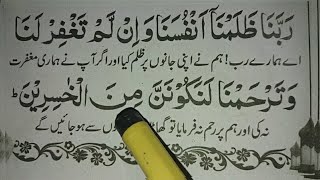 رَبَّنَا ظَلَمْنَآ اَنْفُسَنَا وَاِنْ لَّمْ تَغْفِرْ لَنَا
اے ہمارے رب! ہم نے اپنی جانوں پر ظلم کیا اور اگر آپ نے ہماری مغفرت
وَتَرْحَمْنَا لَنَكُوْنَنَّ مِنَ الْخٰسِرِيْنَ ط
نہ کی اور ہم پر رحم نہ فرمایا تو سے ہو جائیں گے